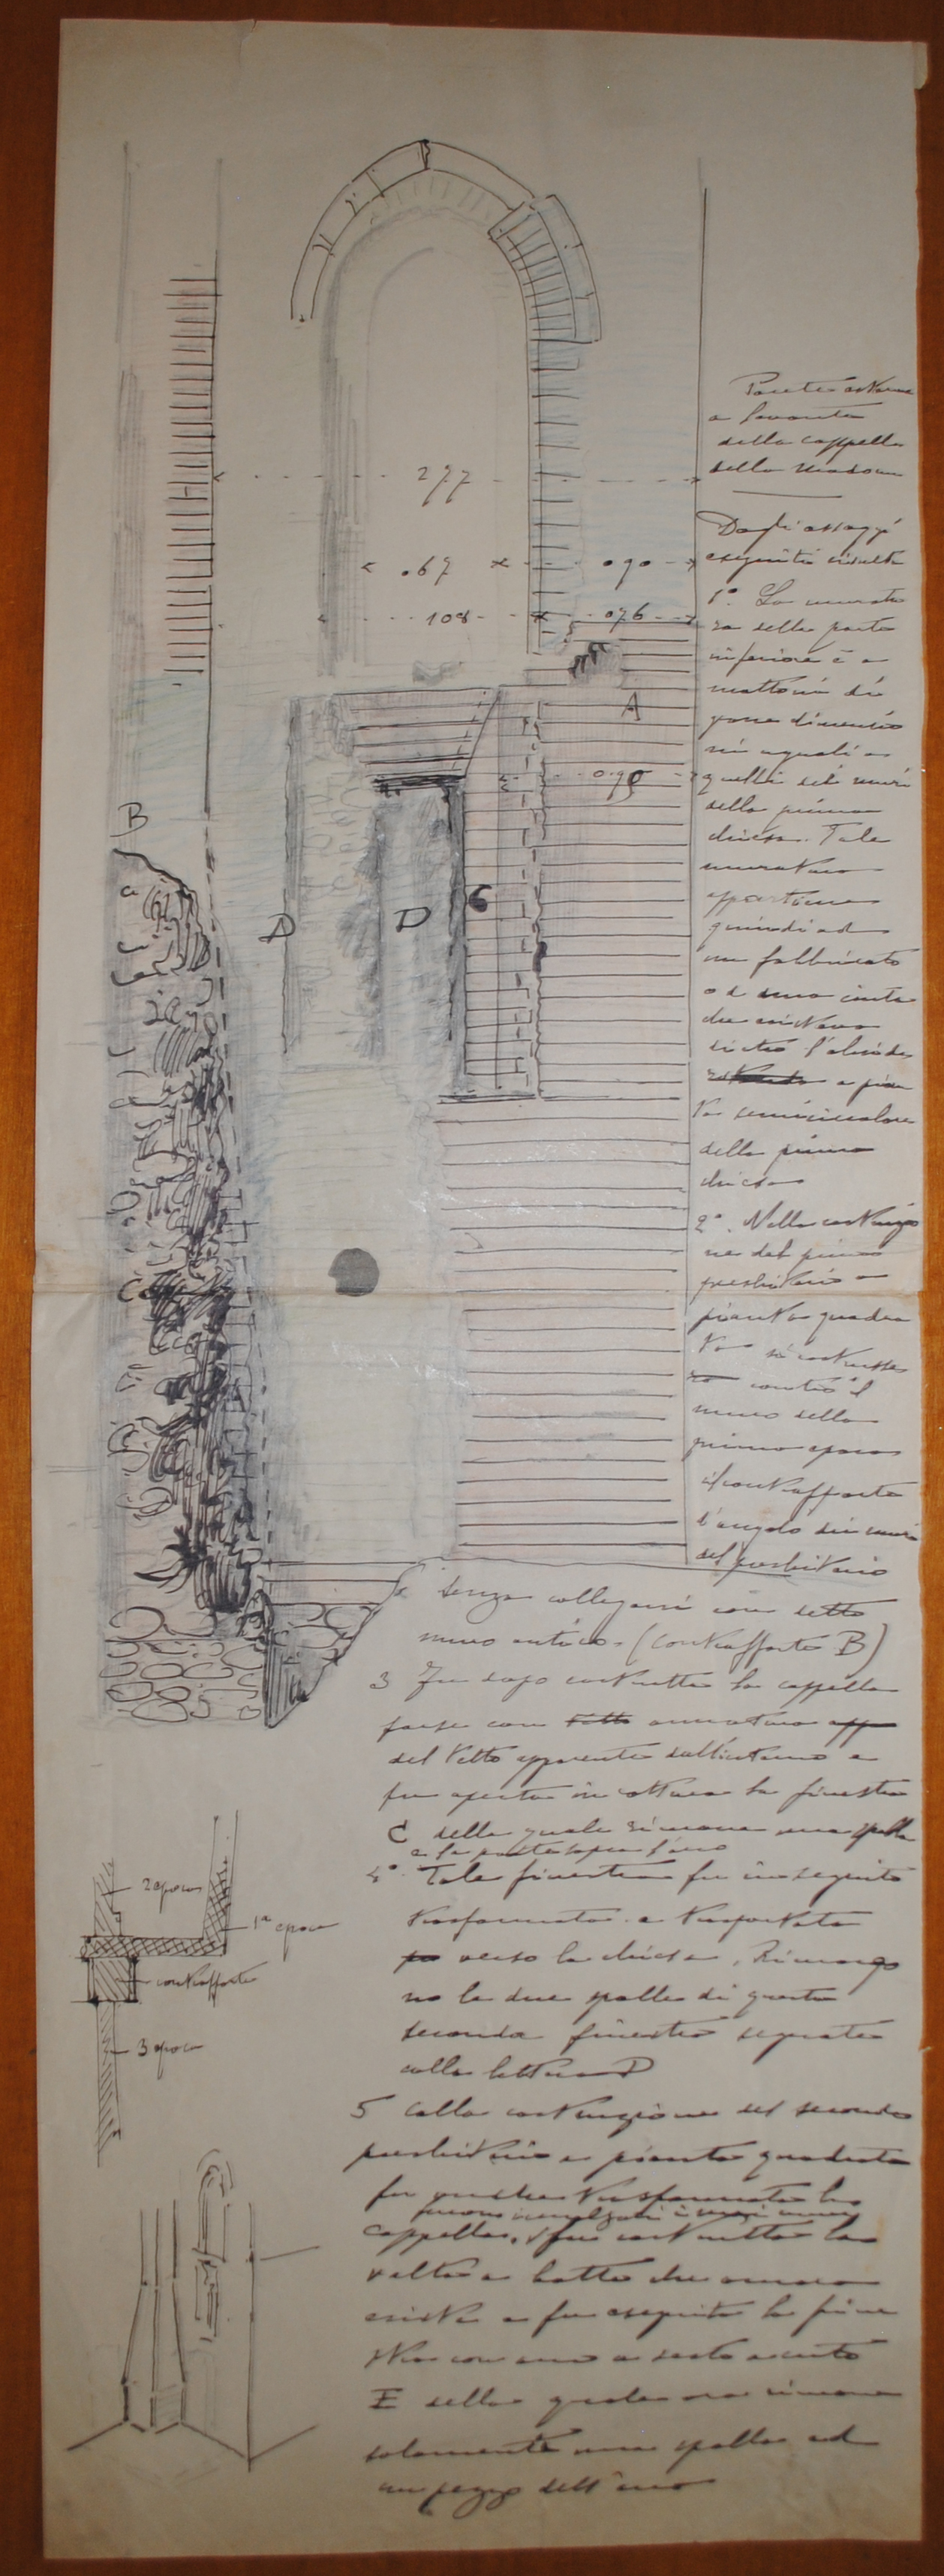 Parete esterna
a levante
della cappella
della Madonna
Dagli assaggi
eseguiti risulta
1º. La muratu
ra della parte
inferiore è a
mattoni di
grosse dimensio
ni uguali a
quelli dei muri
della prima
chiesa. Tale
muratura
appartiene
quindi ad
un fabbricato
o ad una cinta
che esisteva
dietro l'abside
a pian
ta semicircolare
della prima
chiesa
2º. Nella costruzio
ne del primo
presbiterio a
pianta quadra
ta si costrusse
ro contro il
muro della
prima epoca
il contrafforte
d'angolo dei muri
del presbiterio
senza collegarsi con detto
muro antico. (Contrafforte B)
3 Fu dopo costrutta la cappella
forse con armatura
del tetto apparente dall'interno e
fu aperta in rottura la finestra
C della quale rimane una spalla
e la parte sopra l'arco
4º. Tale finestra fu in seguito
trasformata e trasportata
verso la chiesa. Rimango
no le due spalle di questa
seconda finestra segnate
colla lettera D
5 Colla costruzione del secondo
presbiterio a pianta quadrata
fu trasformata la
furono rialzati i muri
cappella, fu costrutta la
volta a botte che ancora
esiste e fu eseguita la fine
stra con arco a sesto acuto
E della quale ora rimane
solamente una spalla ed
un pezzo dell'arco
277
.67
090
108
076
A
090
B
D
D
C
2 epoca
1ª epoca
contrafforte
3 epoca